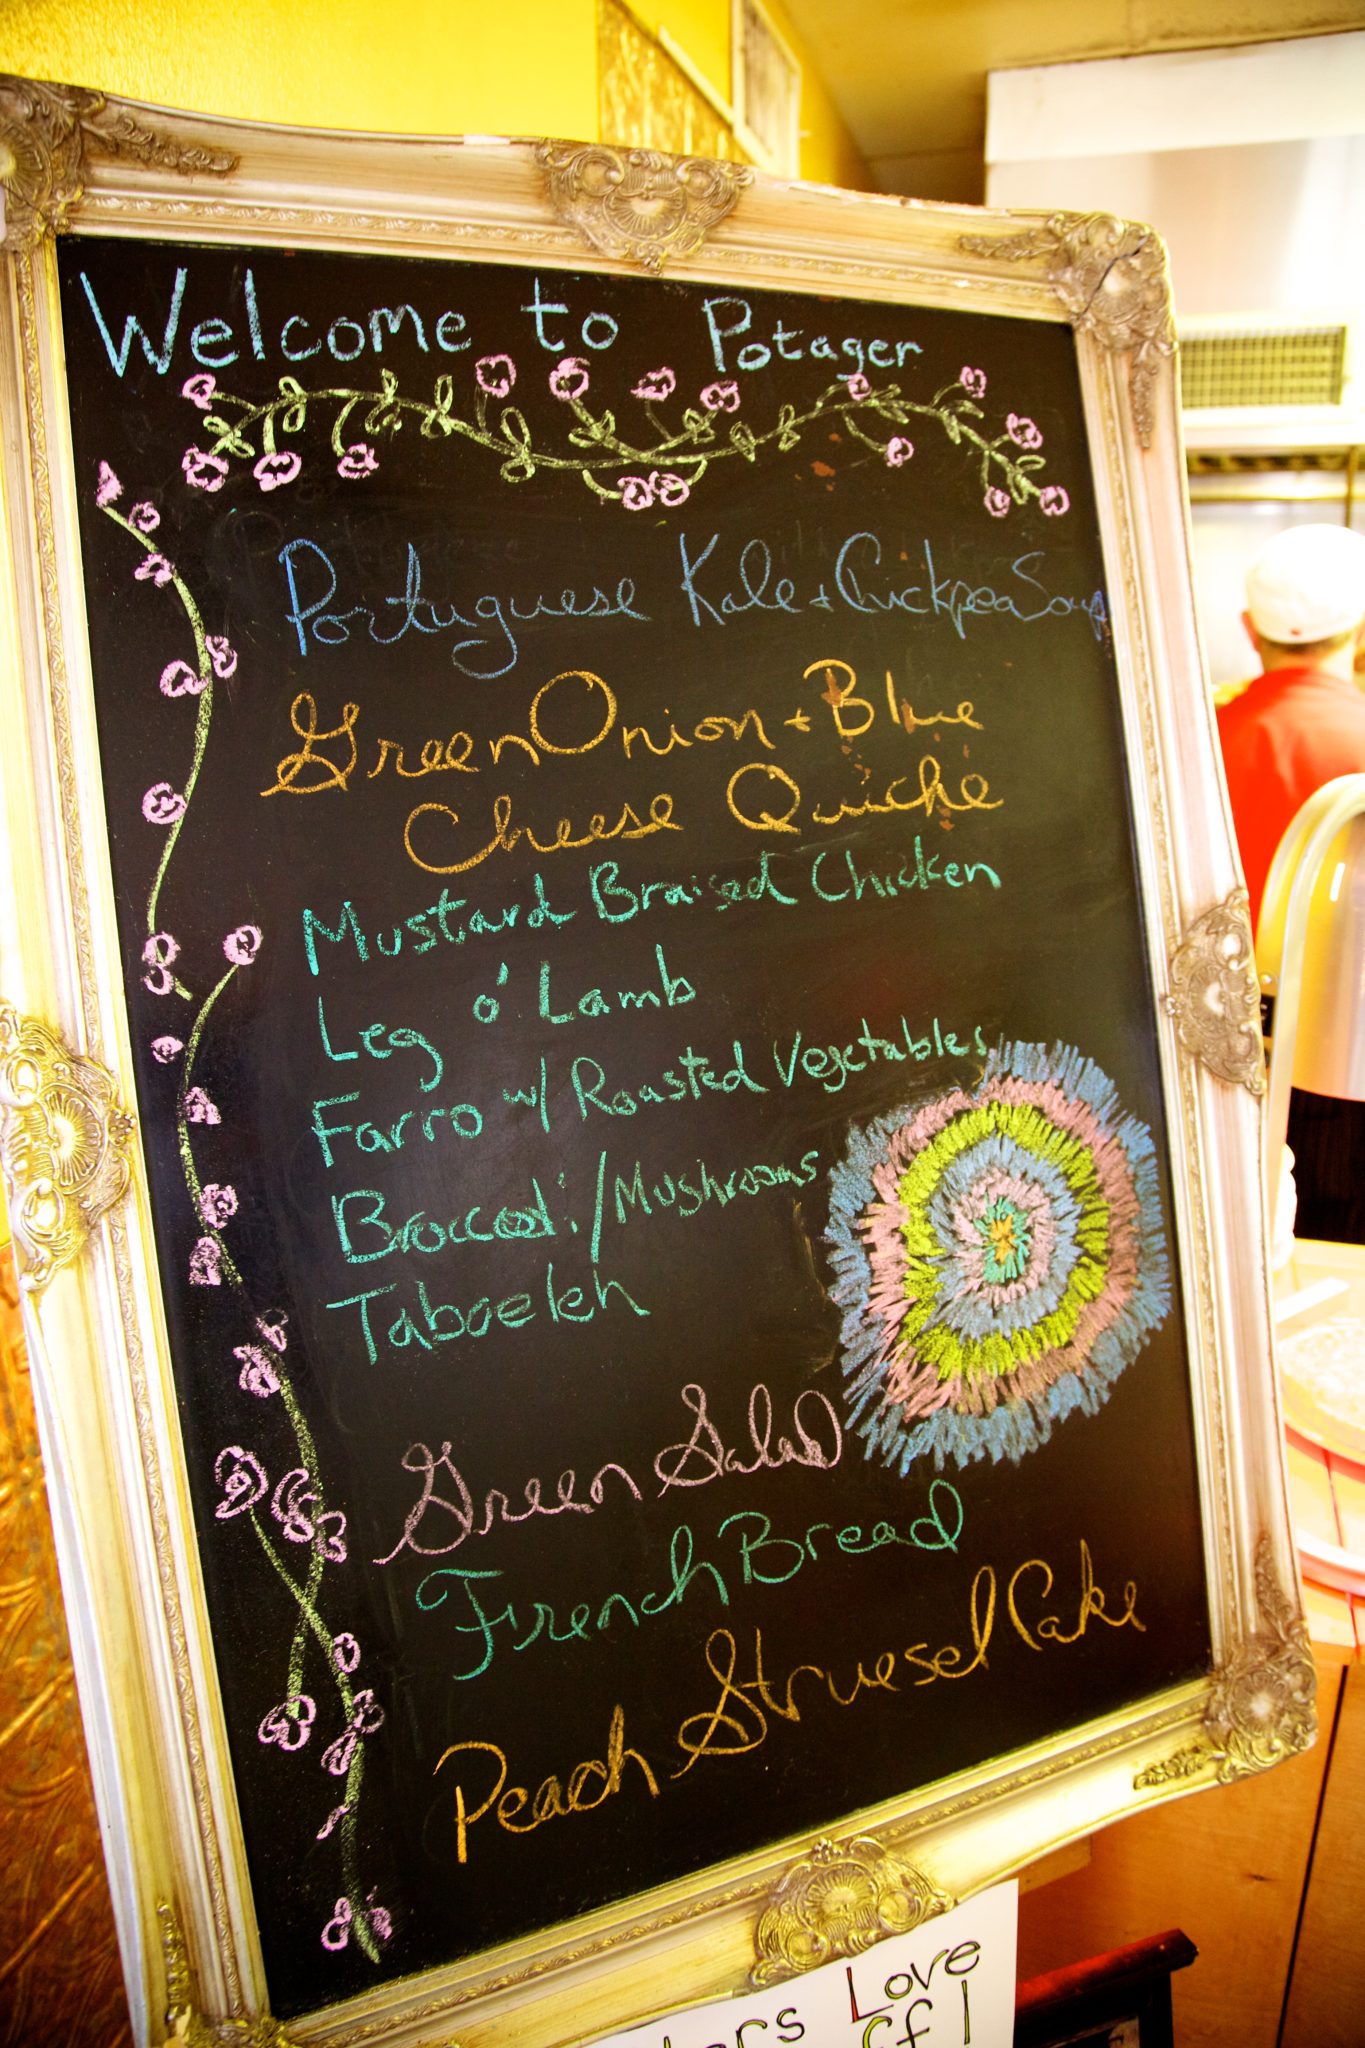 Welcome to Potager
Portuguese Kale + Chickpea Soup
Green Onion + Blue
Cheese Quiche
Mustard Braised Chicken
Leg o' Lamb
Farro w/ Roasted Vegetables
Broccoli/Mushrooms
Taboeleh
Green Salad
French Bread
Peach Struesel Cake
Love